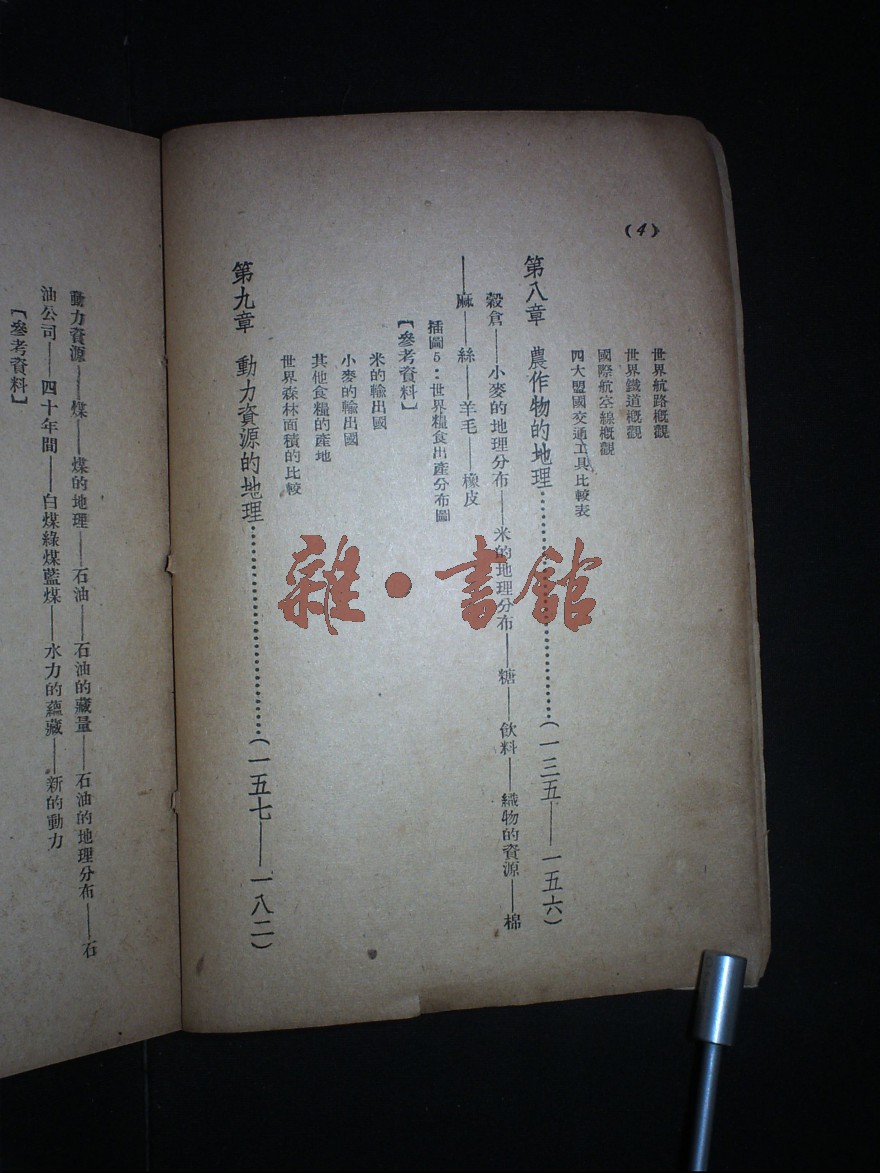 (4)
世界航路概觀
世界鐵道概觀
國際航空線概觀
四大盟國交通工具比較表
第八章　農作物的地理……………………(一三五——一五六)
穀倉——小麥的地理分布——米的地理分布——糖——飲料——織物的資源——棉
——麻——絲——羊毛——橡皮
插圖5：世界糧食出產分布圖
【參考資料】
米的輸出國
小麥的輸出國
其他食糧的產地
世界森林面積的比較
第九章　動力資源的地理……………………(一五七——一八二)
動力資源——煤——煤的地理——石油——石油的藏量——石油的地理分布——石
油公司——四十年間——白煤綠煤藍煤——水力的蘊藏——新的動力
【參考資料】
雜·書館